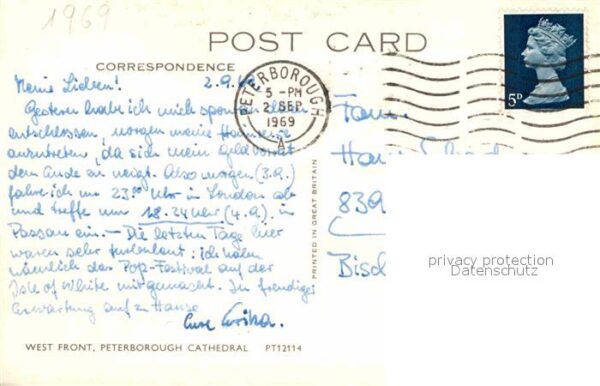 1969
POST CARD
CORRESPONDENCE
Meine Lieben! 2.9.
PETERBOROUGH
5 - PM
2 SEP
1969
A
5D
Gestern habe ich mich spontan
entschlossen, morgen meine Heimreise
anzutreten, da sich mein Geldvorrat
dem Ende zu neigt. Also morgen (3.9.)
fahre ich um 23.00 Uhr in London ab
und treffe um 18.24 Uhr (4.9.) in
Passau ein. – Die letzten Tage hier
waren sehr turbulent: ich habe
nämlich das Pop-Festival auf der
Isle of White mitgemacht. In freudiger
Erwartung auf zu Hause
Eure Erika.
Fam.
839
PRINTED IN GREAT BRITAIN
privacy protection
Datenschutz
WEST FRONT, PETERBOROUGH CATHEDRAL PT12114